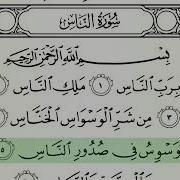 سُورَةُ النَّاسِ
بِسْمِ اللَّهِ الرَّحْمَٰنِ الرَّحِيمِ
بِرَبِّ النَّاسِ ١ مَلِكِ النَّاسِ
٣ مِن شَرِّ الْوَسْوَاسِ الْخَنَّاسِ
وَسْوِسُ فِي صُدُورِ النَّاسِ ٥